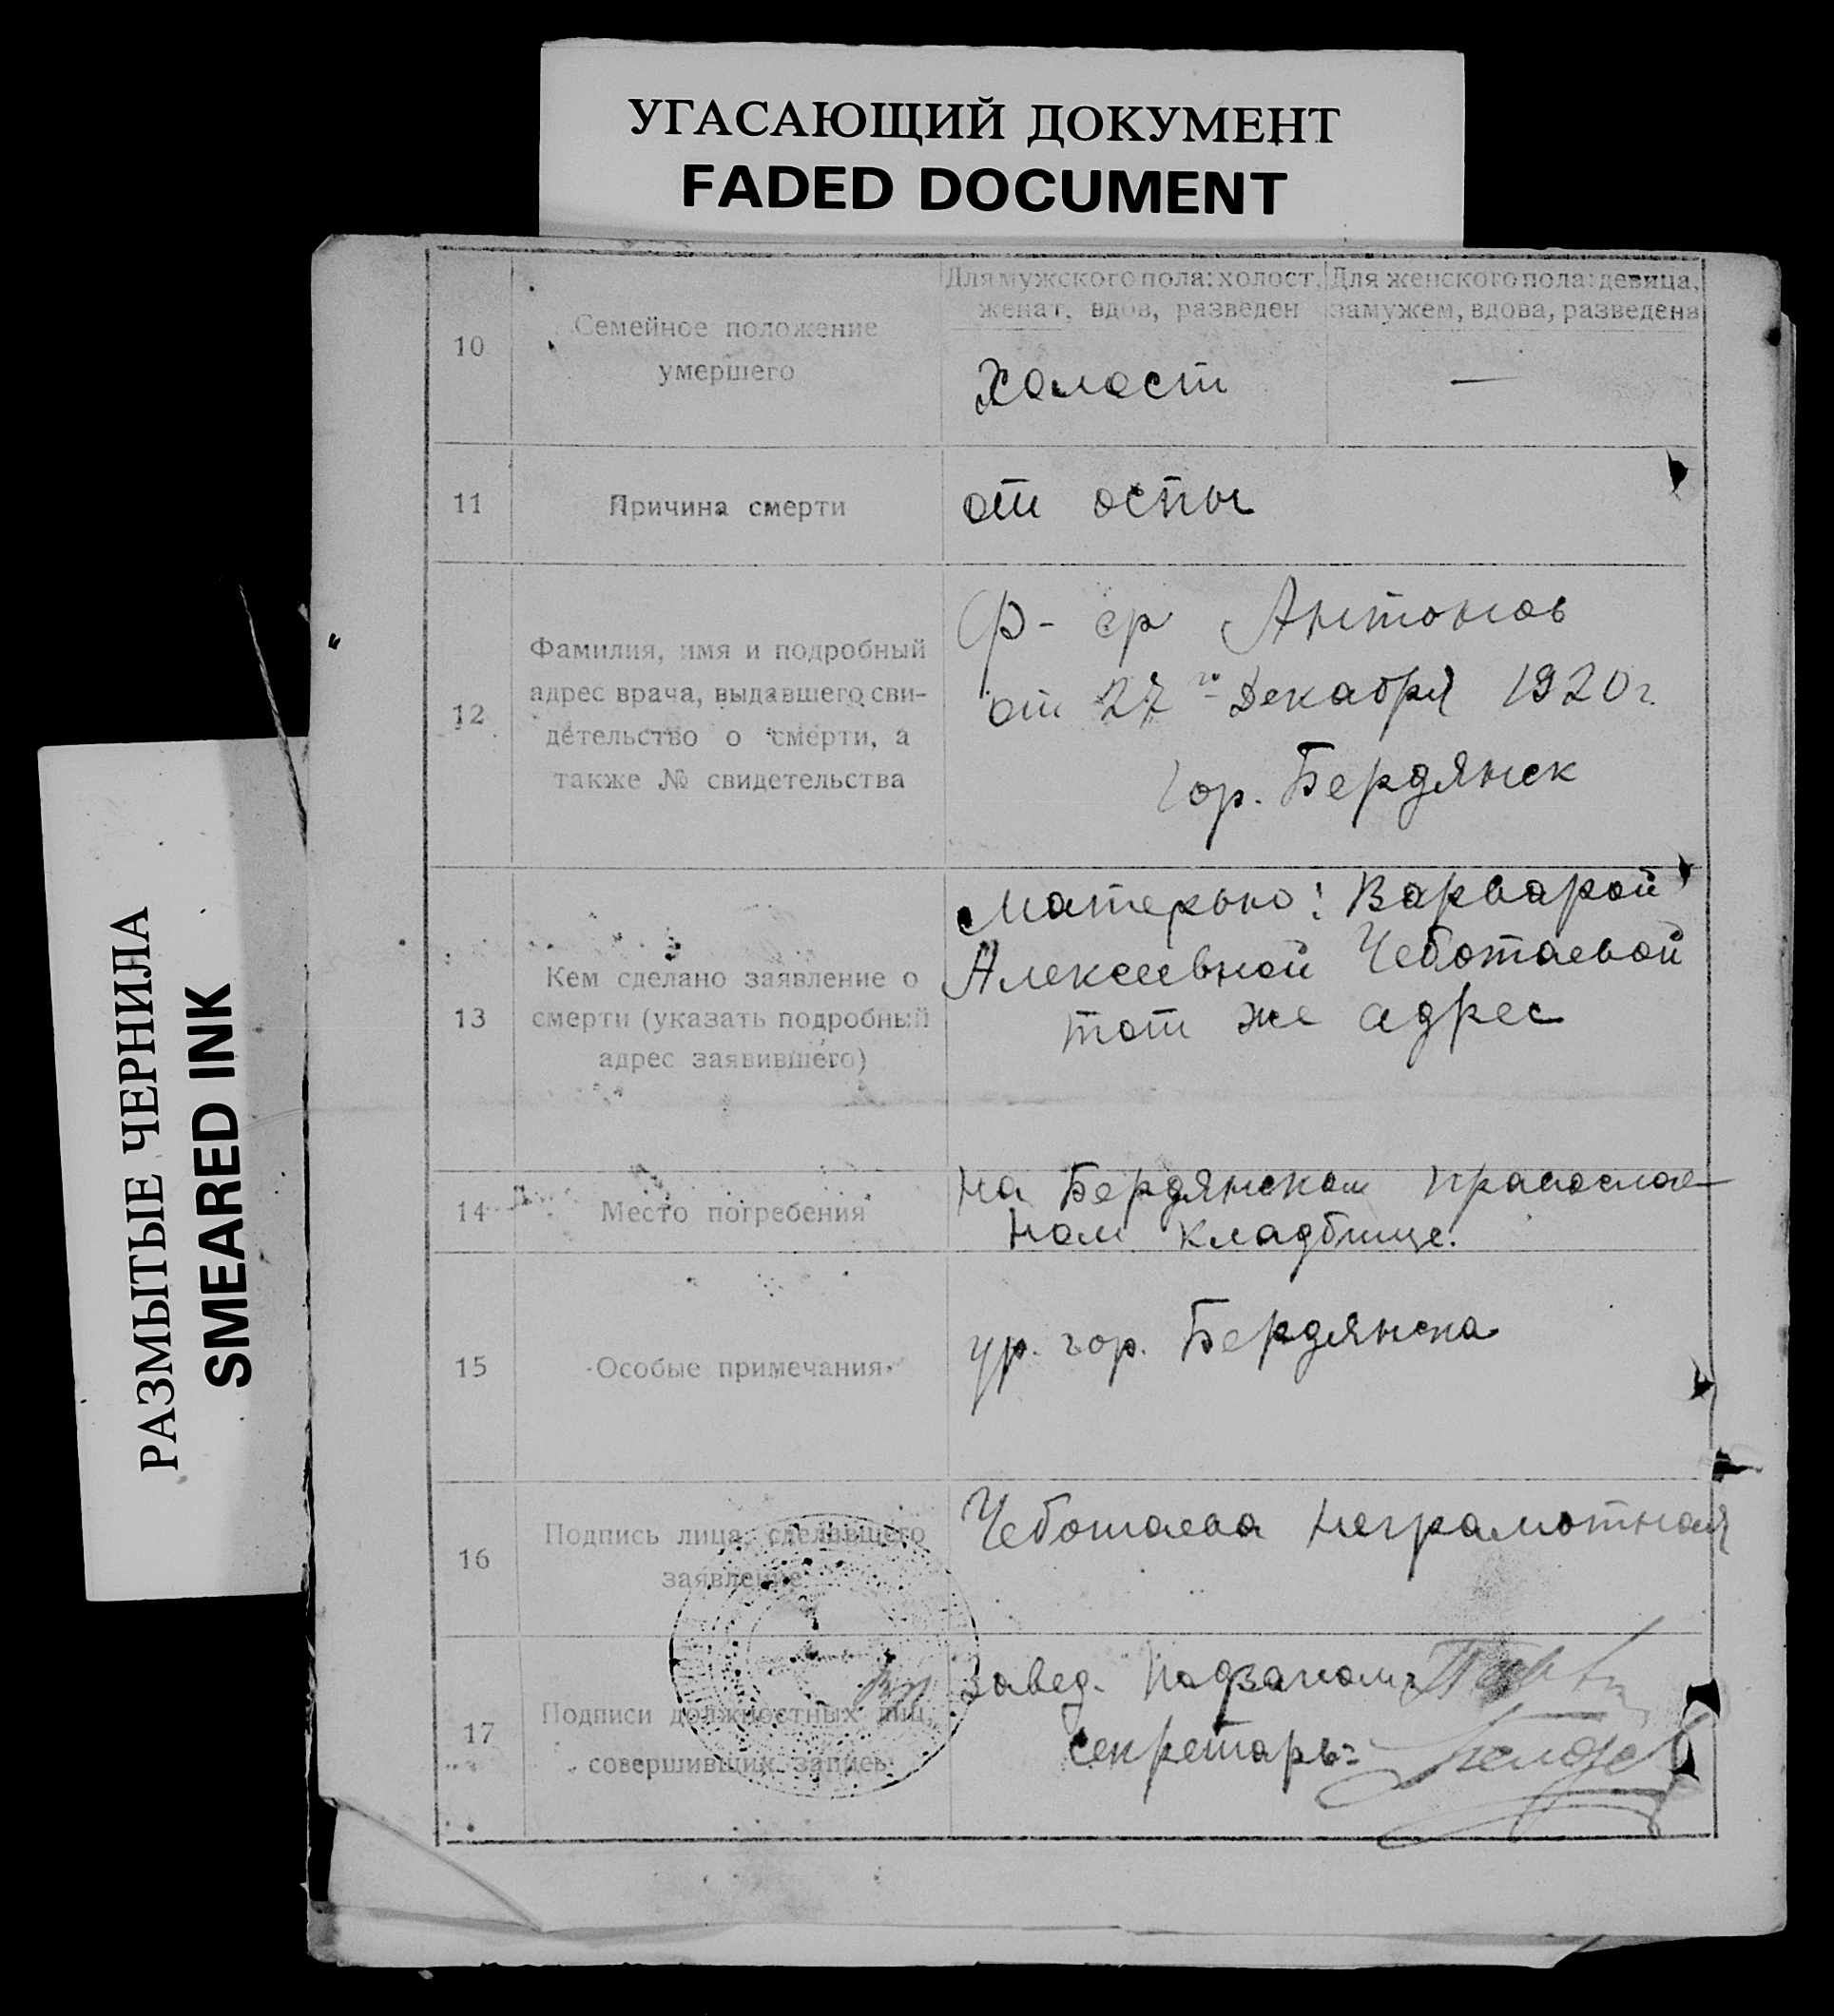 УГАСАЮЩИЙ ДОКУМЕНТ
FADED DOCUMENT
РАЗМЫТЫЕ ЧЕРНИЛА
SMEARED INK
10
Семейное положение
умершего
Для мужского пола: холост,
женат, вдов, разведен
Для женского пола: девица,
замужем, вдова, разведена
Холост
—
11
Причина смерти
от оспы
12
Фамилия, имя и подробный
адрес врача, выдавшего сви-
детельство о смерти, а
также № свидетельства
Ф-ер Антонов
от 27го Декабря 1920 г.
гор. Бердянск
13
Кем сделано заявление о
смерти (указать подробный
адрес заявившего)
Матерью: Варварой
Алексеевной Чеботаевой
тот же адрес
14
Место погребения
на Бердянском православ
ном кладбище.
15
Особые примечания
ур. гор. Бердянска
16
Подпись лица, сделавшего
заявление
Чеботаева неграмотная
17
Подписи должностных лиц,
совершивших запись
Завед.
секретарь: